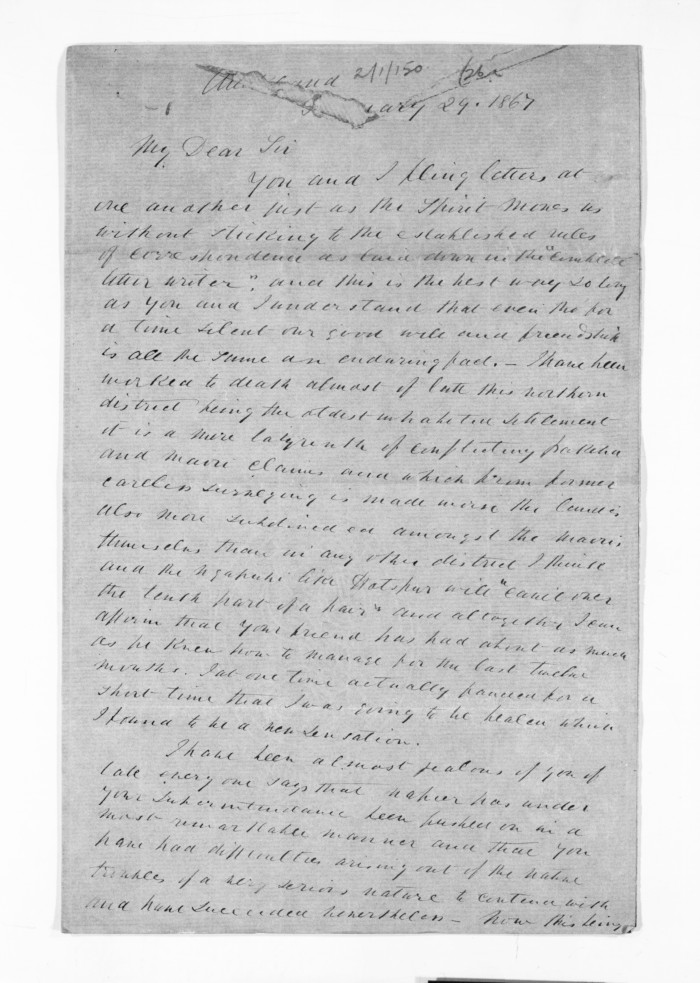 2/1/150
29. 1867
My Dear Sir
You and I fling letters at
one another just as the Spirit moves us
without sticking to the established rules
of correspondence as laid down in the "Complete
letter writer", and this is the best way so long
as you and I understand that even tho for
a time silent our good will and friendship
is all the same an enduring fact. — I have been
worked to death almost of late this northern
district being the oldest inhabited settlement
it is a mere labyrinth of conflicting pakeha
and maori claims and which from former
careless surveying is made worse the land is
also more subdivided amongst the maoris
themselves than in any other district I think
and the Ngapuhi like Hotspur will "cavil over
the tenth part of a hair" and altogether I can
affirm that your friend has had about as much
as he knew how to manage for the last twelve
months. I at one time actually fancied for a
short time that I was going to be beaten which
I found to be a new sensation.
I have been almost jealous of you of
late every one says that Napier has under
your Superintendance been pushed on in a
most remarkable manner and that you
have had difficulties arising out of the native
troubles of a very serious nature to contend with
and have succeeded nevertheless — now this being